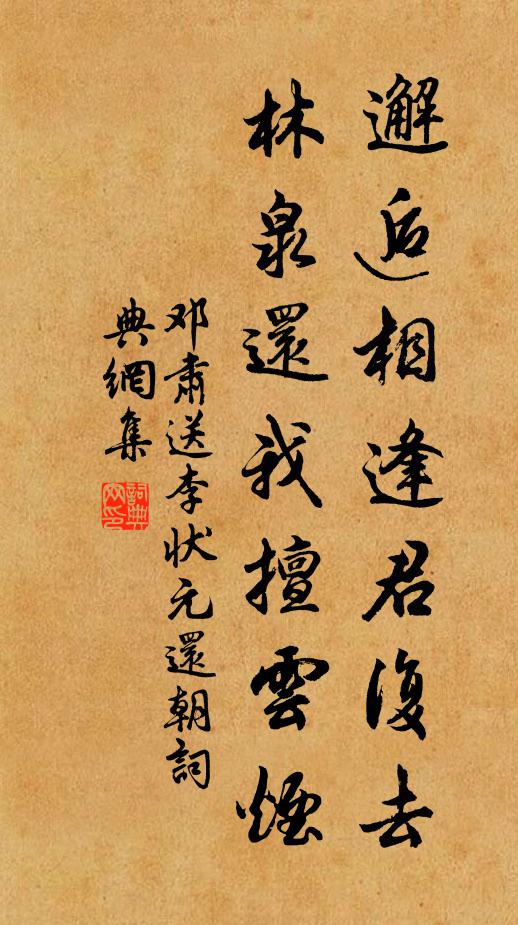 邂逅相逢君復去
林泉還我擅雲煙
邓肅送李状元還朝詞
典網集
詞典网印